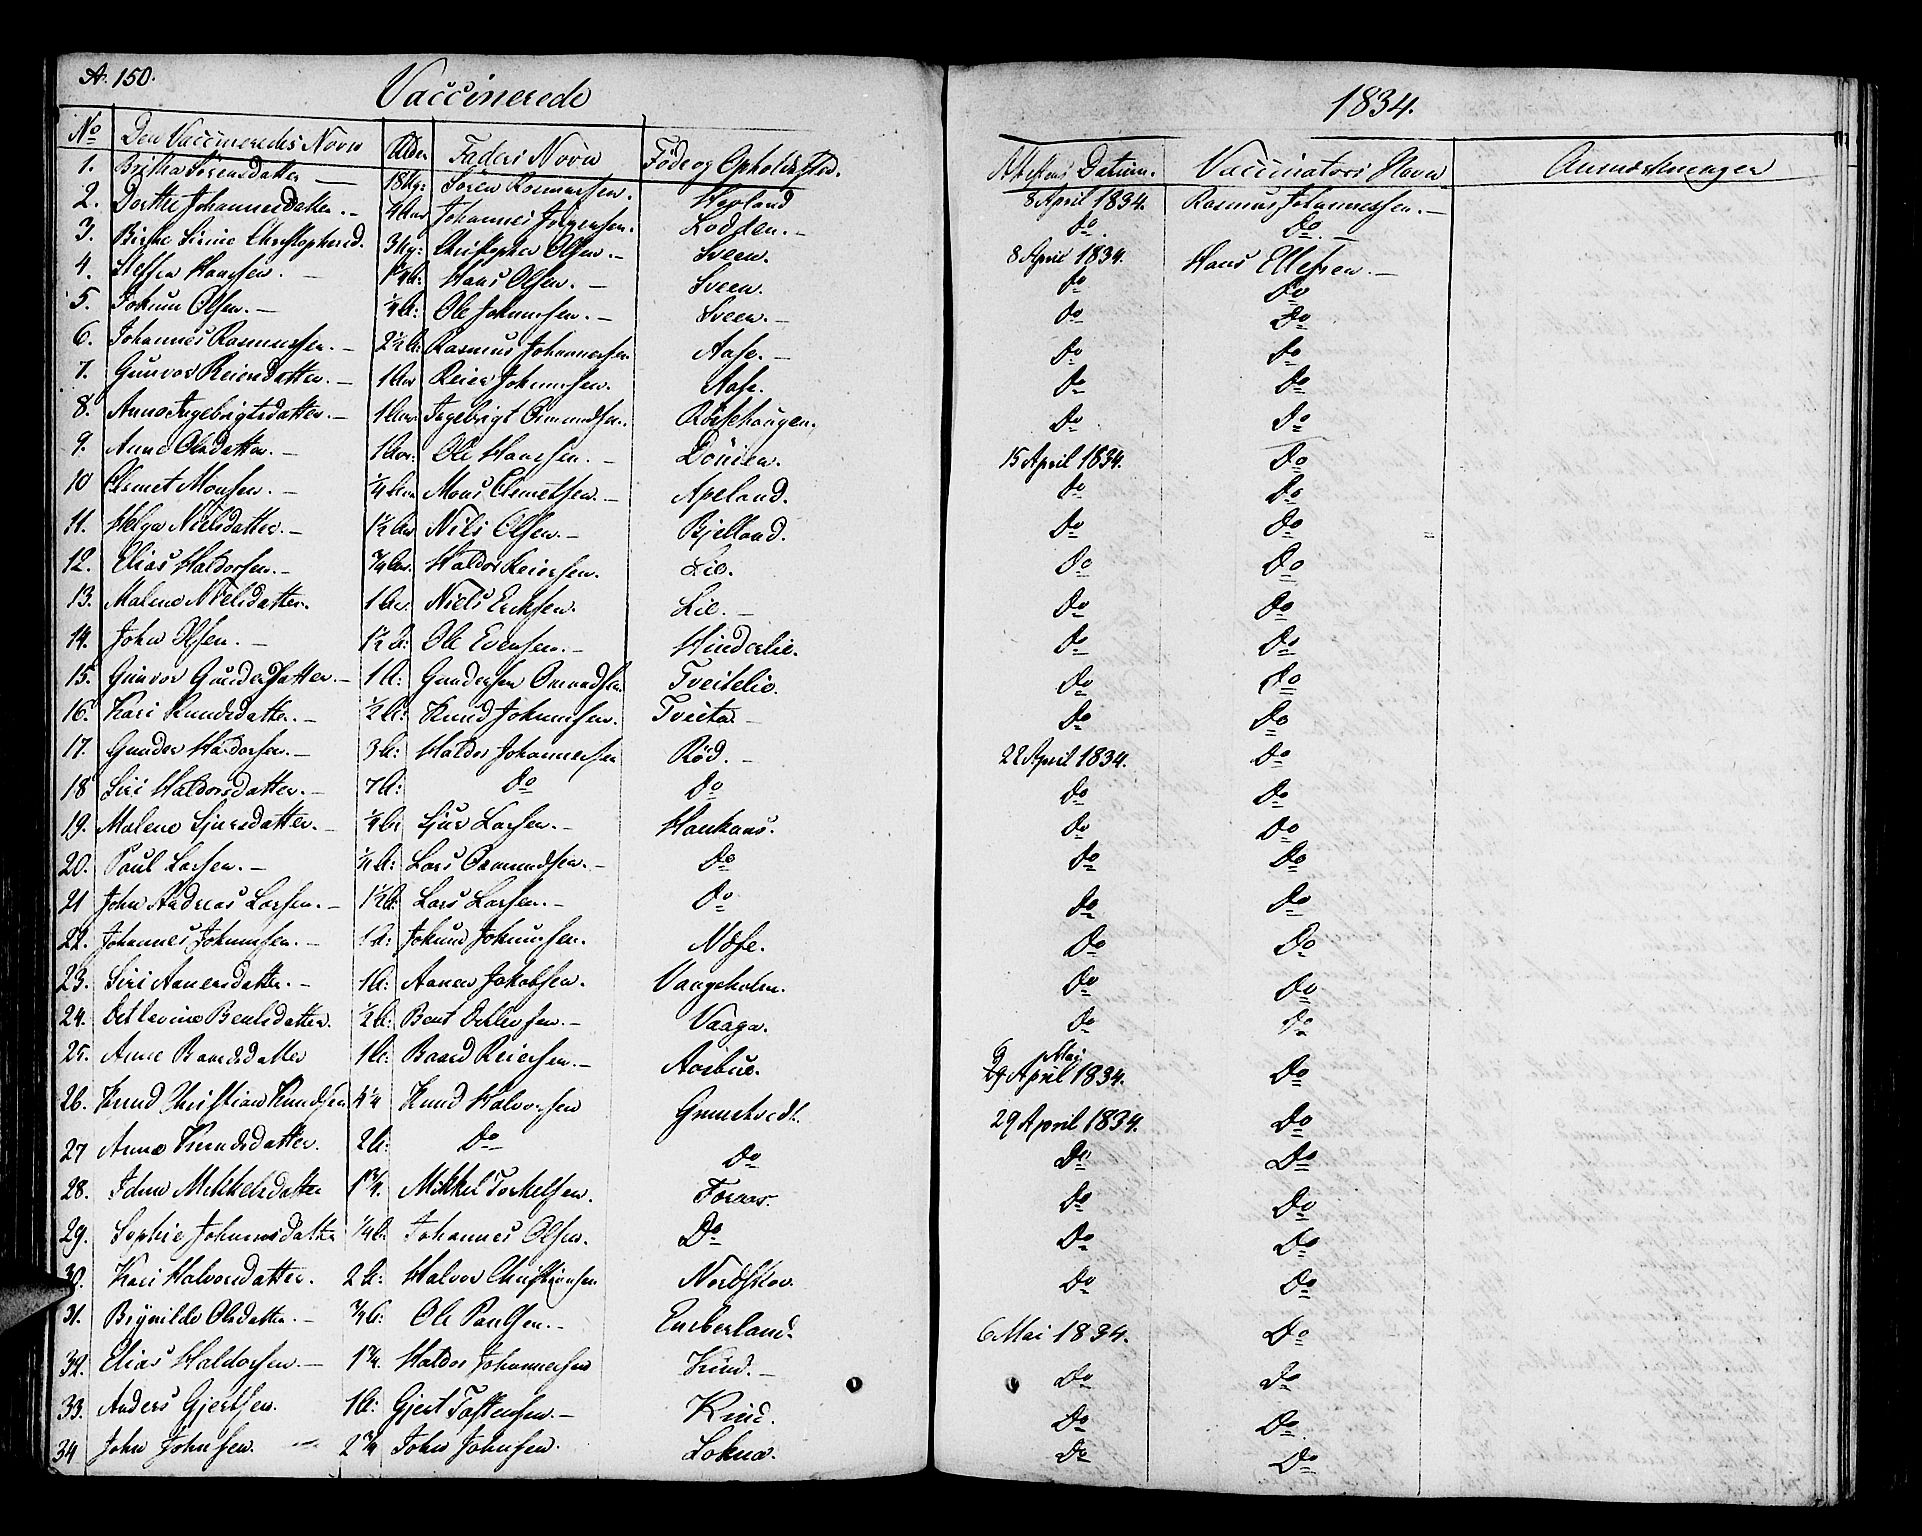 A. 150.
Vaccinerede
1834.
No Den Vaccineredes Navn Alder Faders Navn Føde og Opholdssted. Attestens Datum. Vaccinators Navn Anmærkninger
1. Britha Sörensdatter 18 Ug: Sören Rasmussen. 8 April 1834. Rasmus Johannessen.
2. Dorthe Johannesdatter. Johannes Jörgensen. Lodden. Do Do
3. Birthe Sirine Christophersd. 3 Ug: Christopher Olsen. Sveen. 8 April 1834. Hans Ellefsen.
4. Steffen Hansen. Hans Olsen. Sveen. Do Do
5. Jokum Olsen. 1/4 A: Ole Jokumsen. Sveen. Do Do
6. Johannes Rasmussen. 2 1/2 A: Rasmus Johannessen Aase. Do Do
7. Gunvor Reiersdatter. 1 Aar Reier Jokumsen. Aase. Do Do
8. Anna Ingebrigtsdatter. 1 Aar Ingebrigt Omundsen. Do Do
9. Anne Olsdatter. 1 Aar. Ole Hansen. 15 April 1834. Do
10 Clemet Monsen. 1/4 Aar Mons Clemetsen. Apeland. Do Do
11. Helga Nielsdatter. 1 1/2 Aar Nils Olsen. Bjelland. Do Do
12. Elias Haldorsen. 3/4 Aar. Haldor Reiersen. Lie. Do Do
13. Malene Nielsdatter. 1 Aar. Niels Eriksen. Lie. Do Do
14. John Olsen. 1 1/2 A: Ole Evensen. Hinderlie. Do Do
15. Gunvor Gundersdatter. 1 A: Gundersen Omundsen Tveitelie. Do Do
16. Kari Knudsdatter. 1/2 A: Knud Jokumsen. Tveita Do Do
17. Gunder Haldorsen. 3 A: Haldor Johannessen Röd. 22 April 1834. Do
18 Siri Haldorsdatter. 7 A: Do Do Do Do
19. Malene Sjursdatter. 1/4 A: Sjur Larsen. Haukaas. Do Do
20. Paul Larsen. 1/4 A: Lars Omundsen. Do Do Do
21 John Andreas Larsen. 1 1/2 A: Lars Larsen. Do Do Do
22. Johannes Jokumsen. 1 A: Jokum Jokumsen. Næse. Do Do
23. Siri Aanensdatter. 1 A: Aanen Jakobsen. Vangsholm. Do Do
24. Detlevine Bentsdatter. 1/2 A: Bent Detlevsen. Vaaga. Do Do
25. Anne Baardsdatter 1 A: Baard Reiersen. Aasbue. 6 Mai 29 April 1834. Do
26. Knud Christian Knudsen 4 1/4 Knud Halvorsen 29 April 1834. Do
27 Anne Knudsdatter. 2 A: Do Do Do Do
28. Mikkelsdatter 1 3/4. Mikkel Torkelsen. Do Do
29. Sophie Johannesdatter 1/4 A. Johannes Olsen. Do Do Do
30. Kari Halvorsdatter. 2 A: Halvor Christiansen Nordskov. Do Do
31. Brynilde Olsdatter. 3/4 A: Ole Paulsen. Emberland. 6 Mai 1834. Do
32. Elias Haldorsen. 1 3/4. Haldor Johannessen Kind. Do Do
33. Anders Gjertsen. 1 A: Gjert Tostensen. Kind. Do Do
34 John Johnsen. 2 3/4 John Johnsen. Lokna. Do Do